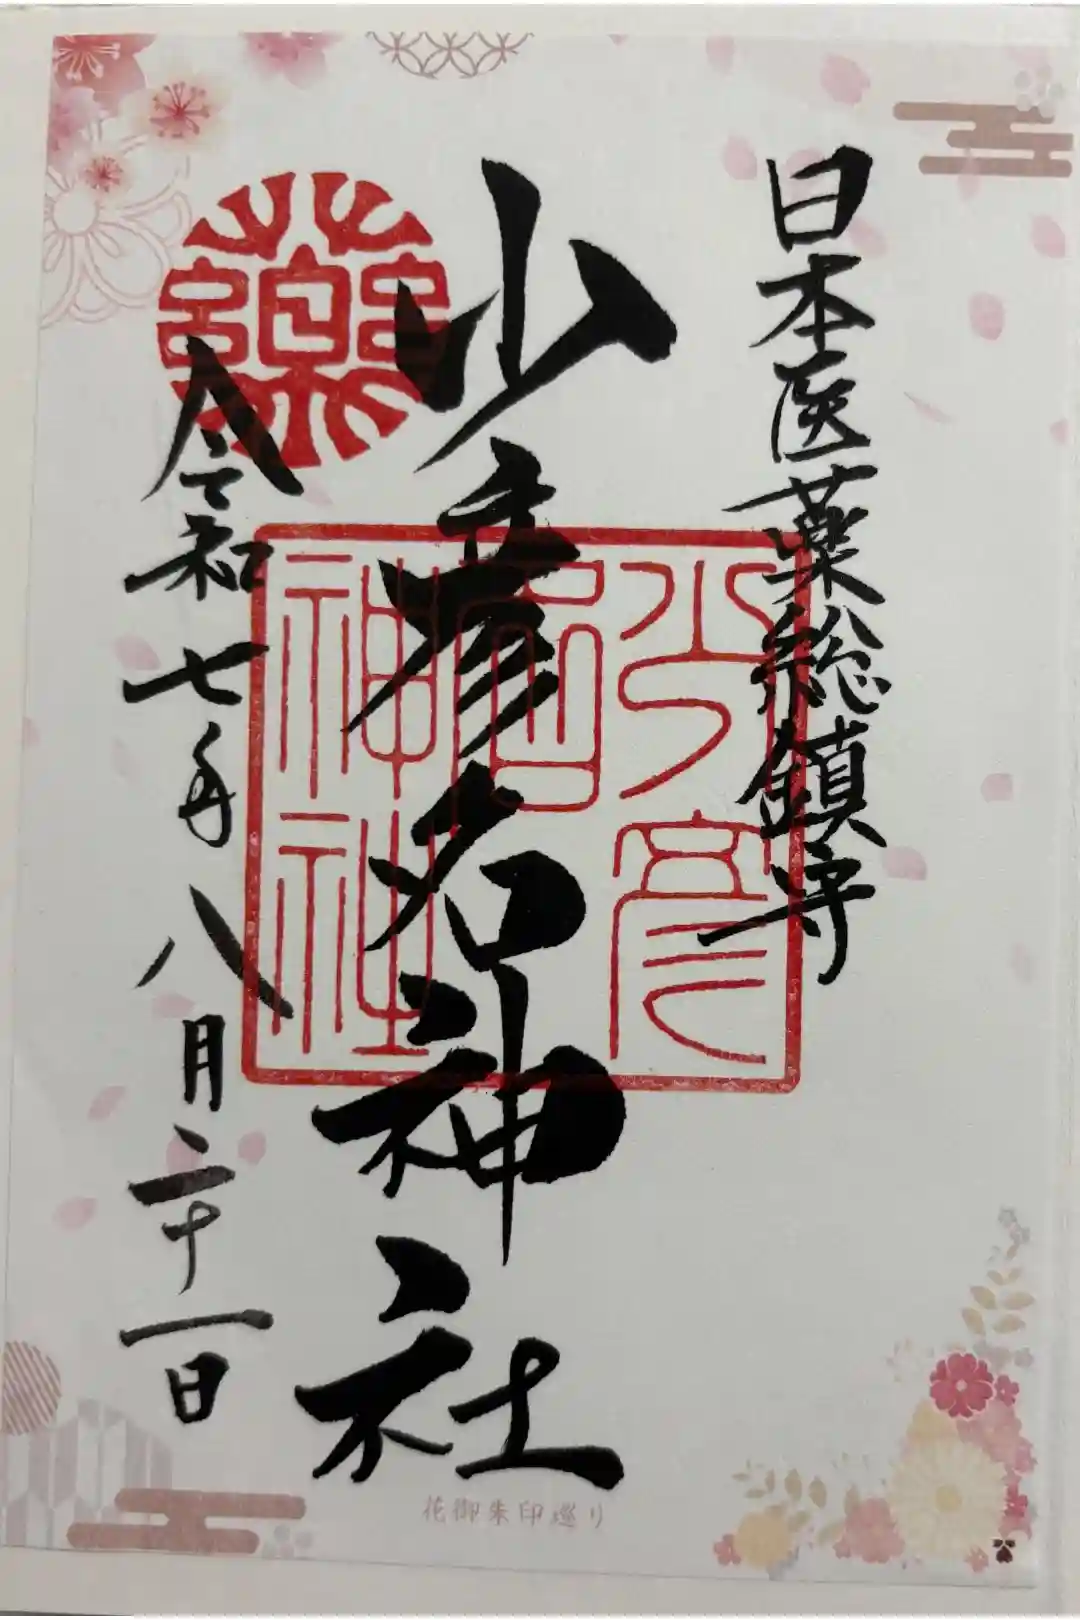 日本医薬総鎮守
少彦名神社
令和七年八月二十一日
薬
少彦名神社
花御朱印巡り